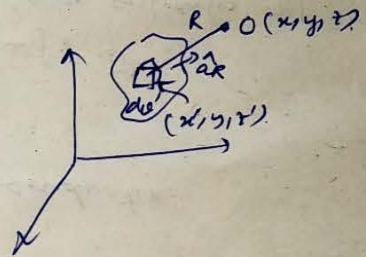 R
O (x, y, z)
âR
dv'
(x', y', z')